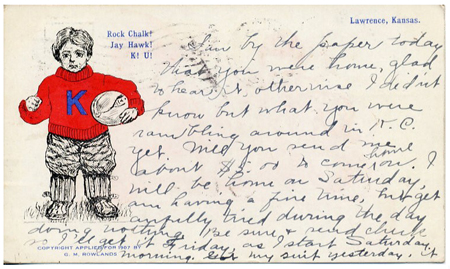 Rock Chalk!
Jay Hawk!
K! U!
Lawrence, Kansas.
K
by the paper today
that you were home, glad
to hear it, otherwise I didn't
know but what you were
rambling around in K. C.
yet. Will you send me
about to come home on. I
will be home on Saturday,
am having a fine time, but get
awfully tired during the day
doing nothing. Be sure & send check
so I get it Friday, as I start Saturday
morning. Got my suit yesterday, it
COPYRIGHT APPLIED FOR 1907 BY
G. M. ROWLANDS